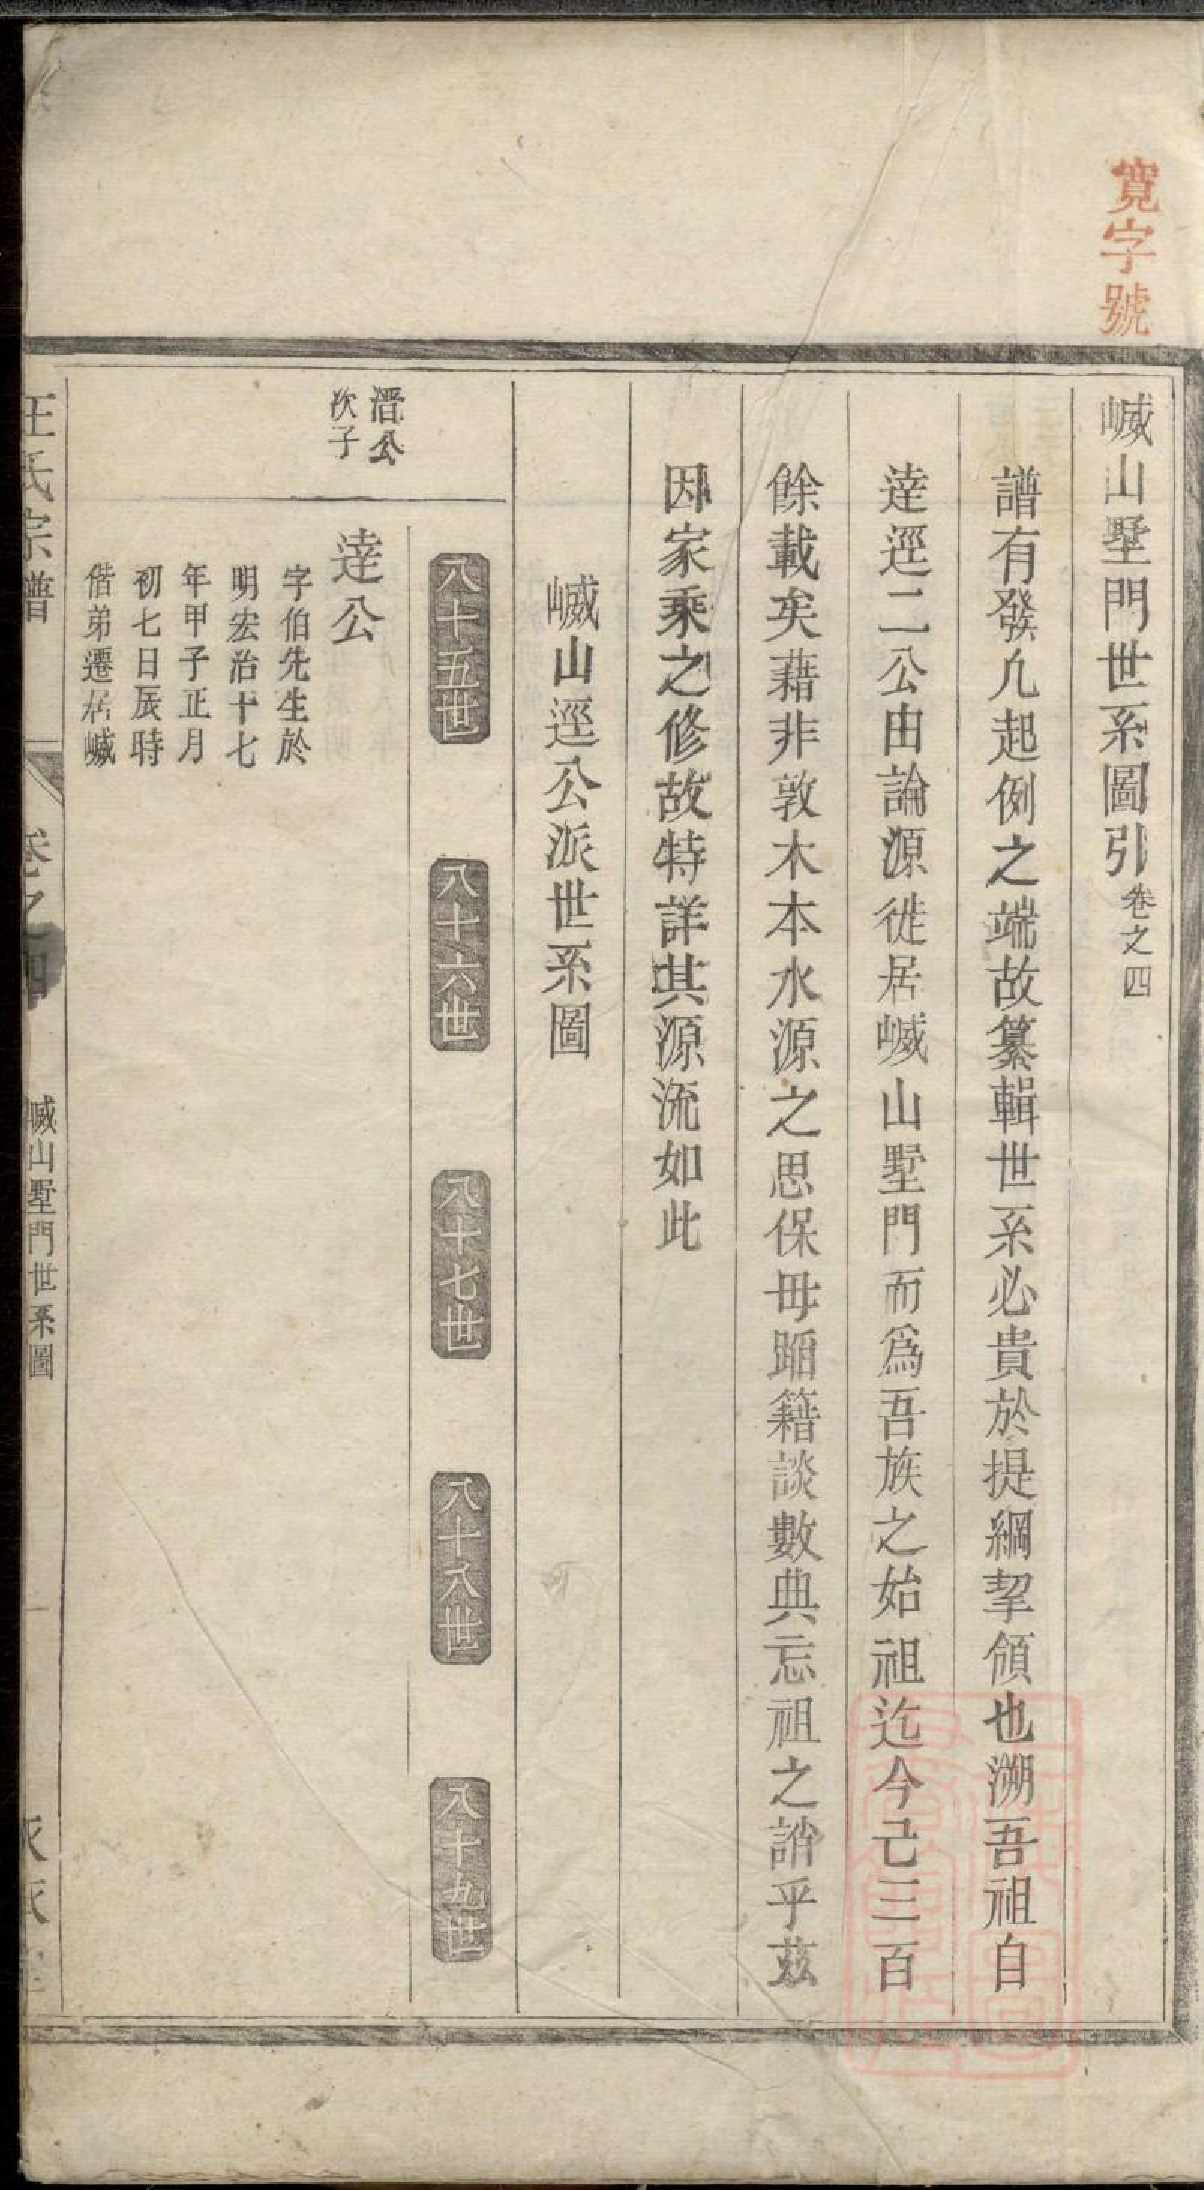 寬字號
嵗山墅門世系圖引卷之四
譜有發凡起例之端故纂輯世系必貴於提綱挈領也溯吾祖自
逹逕二公由論源徙居嵗山墅門而為吾族之始祖迄今己三百
餘載矣藉非敦木本水源之思保毋蹈籍談數典忘祖之誚乎茲
因家乘之修故特詳其源流如此
嵗山逕公派世系圖
八十五世
八十六世
八十七世
八十八世
八十九世
潛公
次子
逹公
字伯先生於
明宏治十七
年甲子正月
初七日辰時
偕弟遷居嵗
汪氏宗譜
卷之四
嵗山墅門世系圖
一